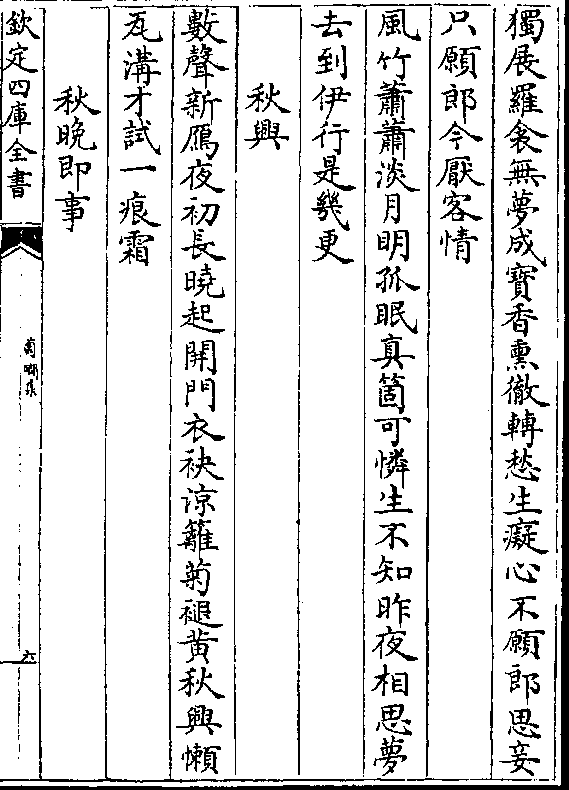 獨展羅衾無夢成寳香熏徹轉愁生癡心不願郎思妾
只願郎今厭客情
風竹蕭蕭淡月明孤眠真箇可憐生不知昨夜相思夢
去到伊行是幾更
秋興
數聲新鴈夜初長曉起開門衣袂凉籬菊褪黄秋興懶
瓦溝才試一痕霜
秋晚即事
欽定四庫全書
六